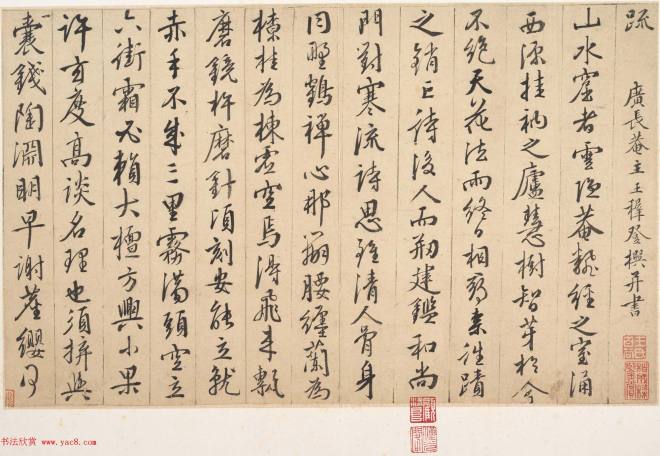 疏
廣長菴主王穉登撰并書
山水窟者雲隱菴翻經之室涌
西源挂衲之廬慧樹智芽於今
不絕天花法雨終日相柰往蹟
之銷亡後人而刱建鑑和尚
門對寒流詩思雖清人骨身
同野鶴禪心那腰纏蘭為
橑桂為棟虛空焉得飛來甎
磨鏡杵磨針頃刻安能立就
赤手不成三里霧滿頭空立
六街霜不賴大檀方興小果
許玄度高談名理也須拚與
囊錢陶淵明早謝塵纓何
书法欣赏 www.yac8.com